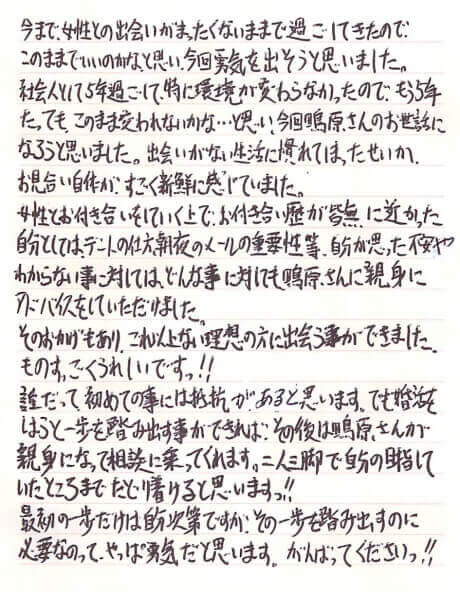 今まで、女性との出会いがまったくないままで過ごしてきたので、
このままでいいのかな、と思い、今回勇気を出そうと思いました。
社会人として5年過ごして、特に環境が変わらなかったので、もう5年
たっても、このまま変われないかな…と思い、今回鳴原さんのお世話に
なろうと思いました。出会いがない生活に慣れてしまったせいか、
お見合い自体が、すごく新鮮に感じていました。
女性とお付き合いをしていく上で、お付き合い歴が皆無に近かった
自分としては、デートの仕方、朝夜のメールの重要性等、自分が思った不安や
わからない事に対しては、どんな事に対しても鳴原さんに親身に
アドバイスをしていただけました。
そのおかげもあり、これ以上ない理想の方に出会う事ができました。
ものすっごくうれしいですっ!!
誰だって、初めての事には抵抗があると思います。でも婚活を
はじめる一歩を踏み出す事ができれば、その後は鳴原さんが
親身になって相談に乗ってくれます。二人三脚で自分の目指して
いたところまでたどり着けると思いますっ!!
最初の一歩だけは自分次第ですが、その一歩を踏み出すのに
必要なのって、やっぱ勇気だと思います。がんばってくださいっ!!